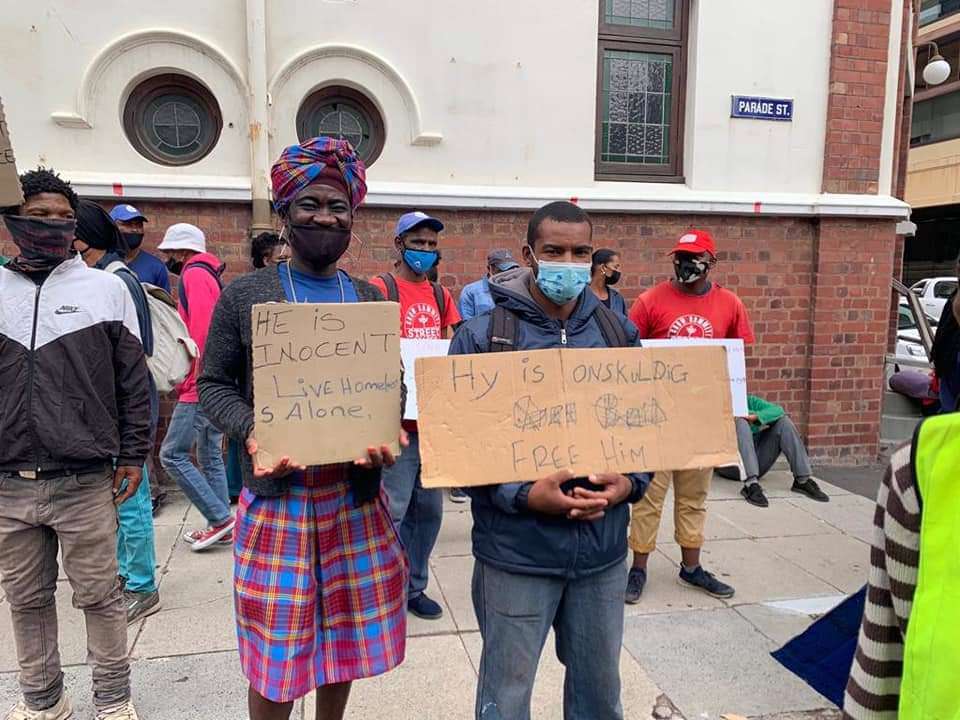 PARADE ST.
HE IS
INOCENT
Live Homeless
s Alone,
Hy is ONSKULDIG
FREE Him
STREET